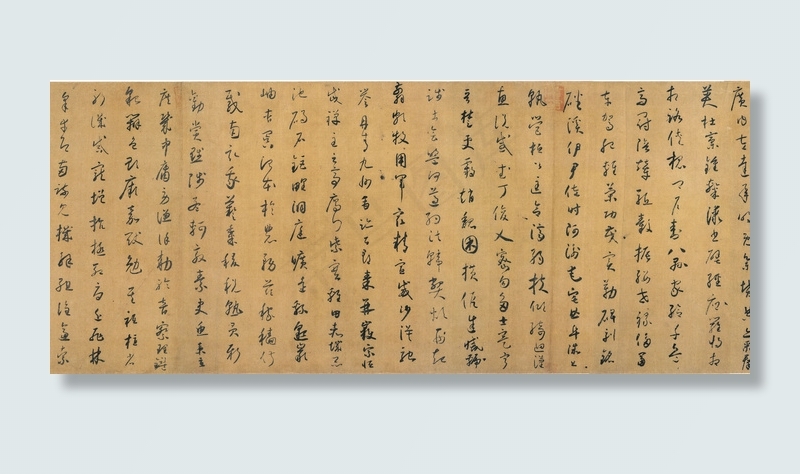 廣內左達承明既集墳典亦聚群
英杜稾鍾隸漆書壁經府羅將相
路俠槐卿戶封八縣家給千兵
高冠陪輦驅轂振纓世祿侈富
車駕肥輕策功茂實勒碑刻銘
磻溪伊尹佐時阿衡奄宅曲阜微旦
孰營桓公匡合濟弱扶傾綺迴漢
惠說感武丁俊乂密勿多士寔寧
晉楚更霸趙魏困橫假途滅虢
踐土會盟何遵約法韓弊煩刑起
翦頗牧用軍最精宣威沙漠馳
譽丹青九州禹跡百郡秦并嶽宗恆
岱禪主云亭雁門紫塞雞田赤城昆
池碣石鉅野洞庭曠遠綿邈巖
岫杳冥治本於農務茲稼穡俶
載南畝我藝黍稷稅熟貢新
勸賞黜陟孟軻敦素史魚秉直
庶幾中庸勞謙謹敕聆音察理鑑
貌辨色貽厥嘉猷勉其祗植省
躬譏誡寵增抗極殆辱近恥林
皋幸即兩疏見機解組誰逼索